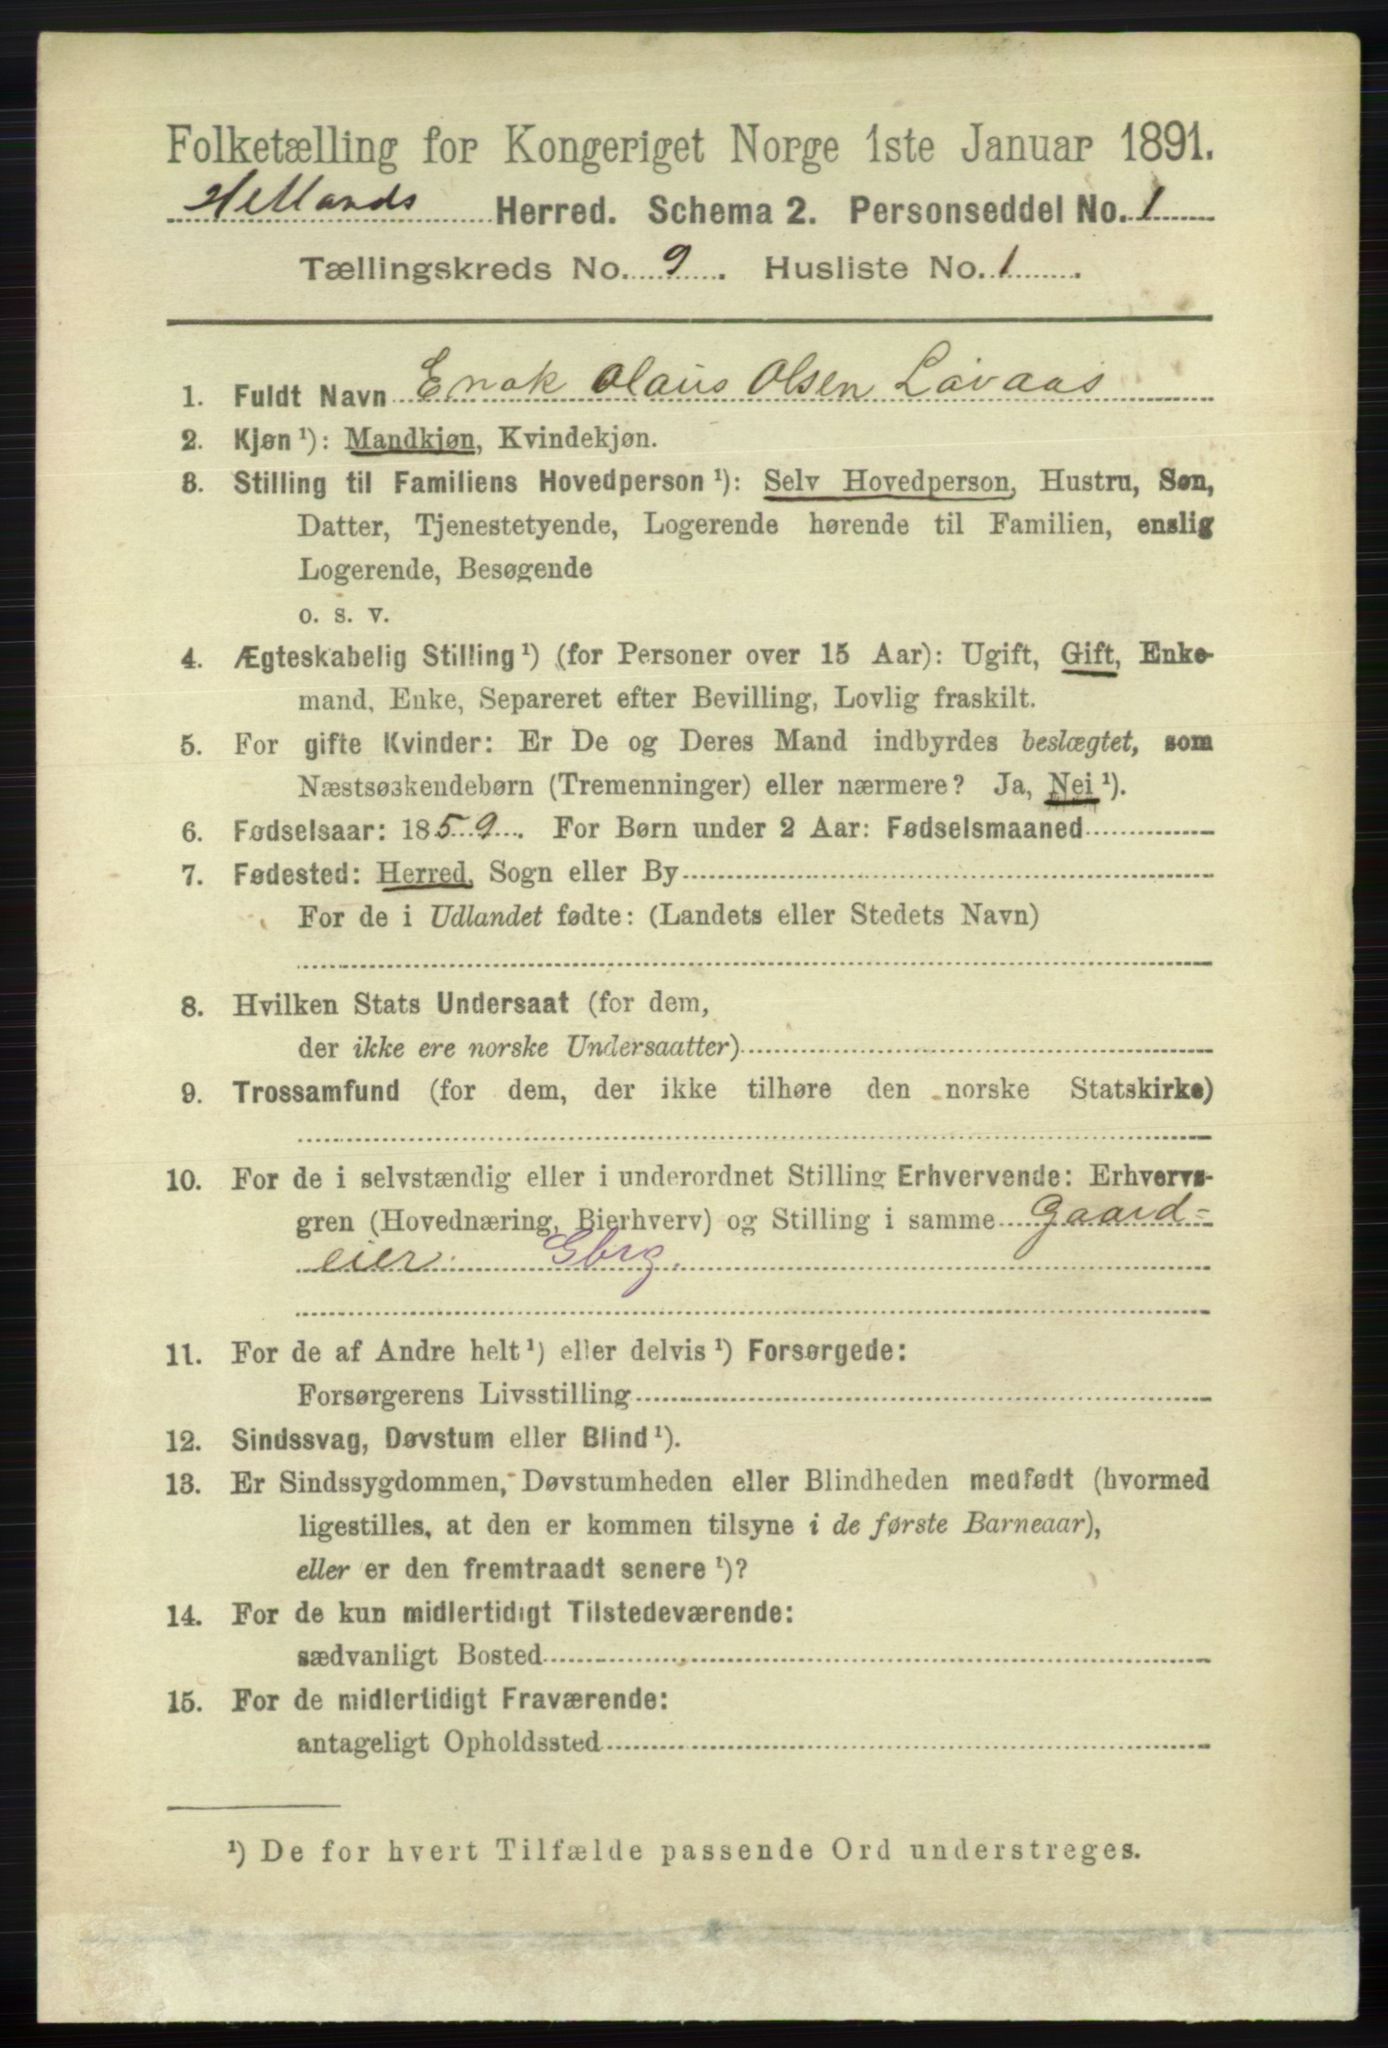 Folketælling for Kongeriget Norge 1ste Januar 1891.
Hetlands Herred. Schema 2. Personseddel No. 1
Tællingskreds No. 9. Husliste No. 1.
1. Fuldt Navn Enok Olaus Olsen Lavaas
2. Kjøn ¹): Mandkjøn, Kvindekjøn.
3. Stilling til Familiens Hovedperson ¹): Selv Hovedperson, Hustru, Søn,
Datter, Tjenestetyende, Logerende hørende til Familien, enslig
Logerende, Besøgende
o. s. v.
4. Ægteskabelig Stilling ¹) (for Personer over 15 Aar): Ugift, Gift, Enke-
mand, Enke, Separeret efter Bevilling, Lovlig fraskilt.
5. For gifte Kvinder: Er De og Deres Mand indbyrdes beslægtet, som
Næstsøskendebørn (Tremenninger) eller nærmere? Ja, Nei ¹).
6. Fødselsaar: 1859. For Børn under 2 Aar: Fødselsmaaned
7. Fødested: Herred, Sogn eller By
For de i Udlandet fødte: (Landets eller Stedets Navn)
8. Hvilken Stats Undersaat (for dem,
der ikke ere norske Undersaatter)
9. Trossamfund (for dem, der ikke tilhøre den norske Statskirke)
10. For de i selvstændig eller i underordnet Stilling Erhvervende: Erhvervs-
gren (Hovednæring, Bierhverv) og Stilling i samme Gaard=
eier. Gbrg.
11. For de af Andre helt ¹) eller delvis ¹) Forsørgede:
Forsørgerens Livsstilling
12. Sindssvag, Døvstum eller Blind ¹).
13. Er Sindssygdommen, Døvstumheden eller Blindheden medfødt (hvormed
ligestilles, at den er kommen tilsyne i de første Barneaar),
eller er den fremtraadt senere ¹)?
14. For de kun midlertidigt Tilstedeværende:
sædvanligt Bosted
15. For de midlertidigt Fraværende:
antageligt Opholdssted
¹) De for hvert Tilfælde passende Ord understreges.